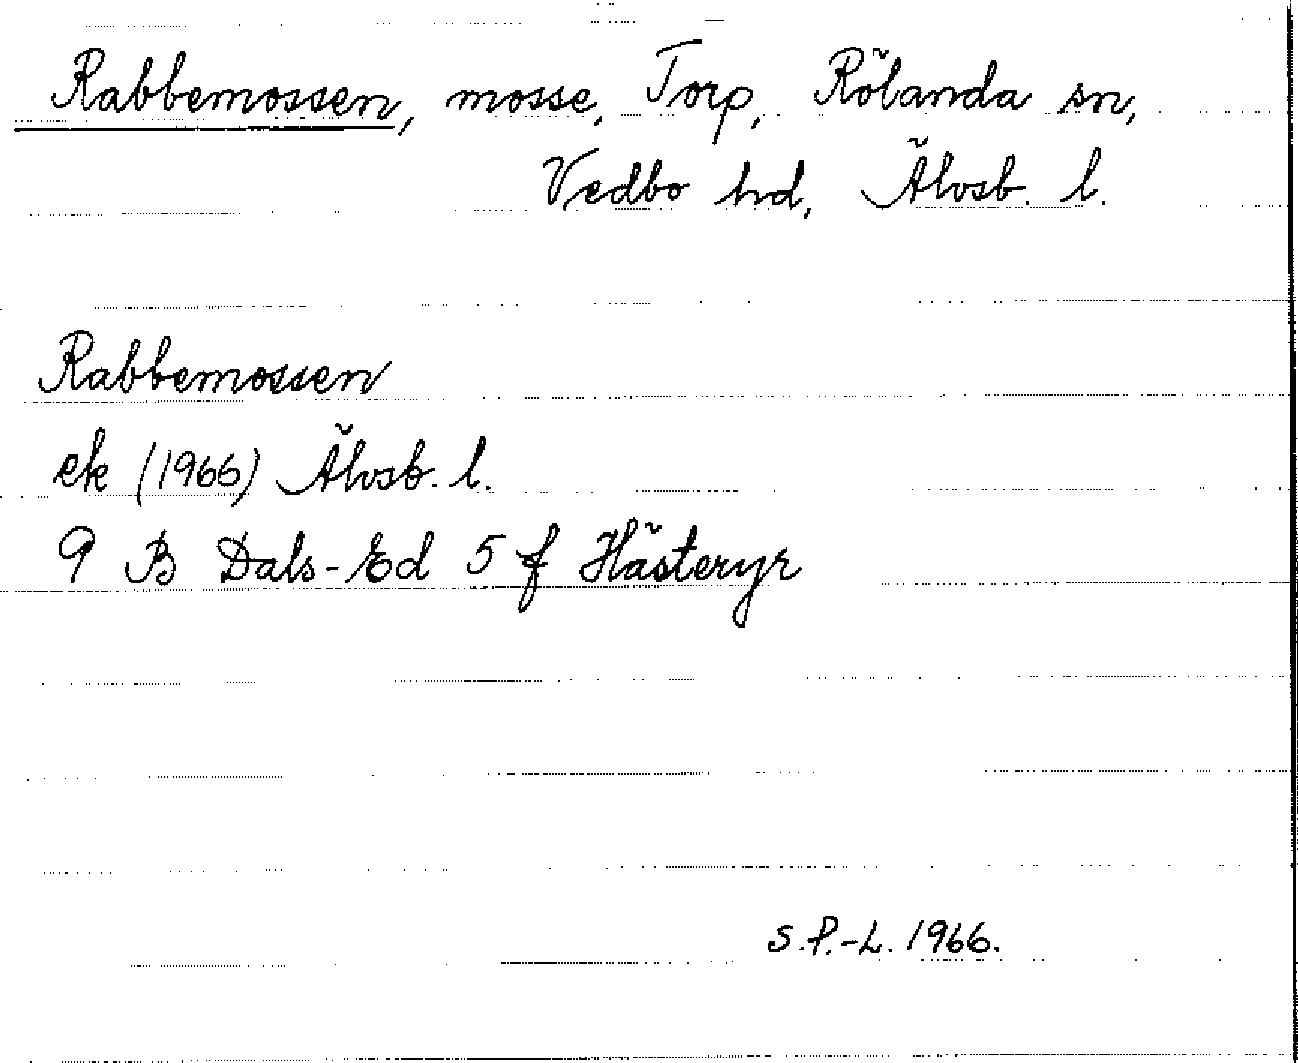 Rabbemossen, mosse, Torp, Rölanda sn,
Vedbo hd, Älvsb. l.
Rabbemossen
ek (1966) Älvsb. l.
9 B Dals-Ed 5 f Hästeryr
S.P.-L. 1966.